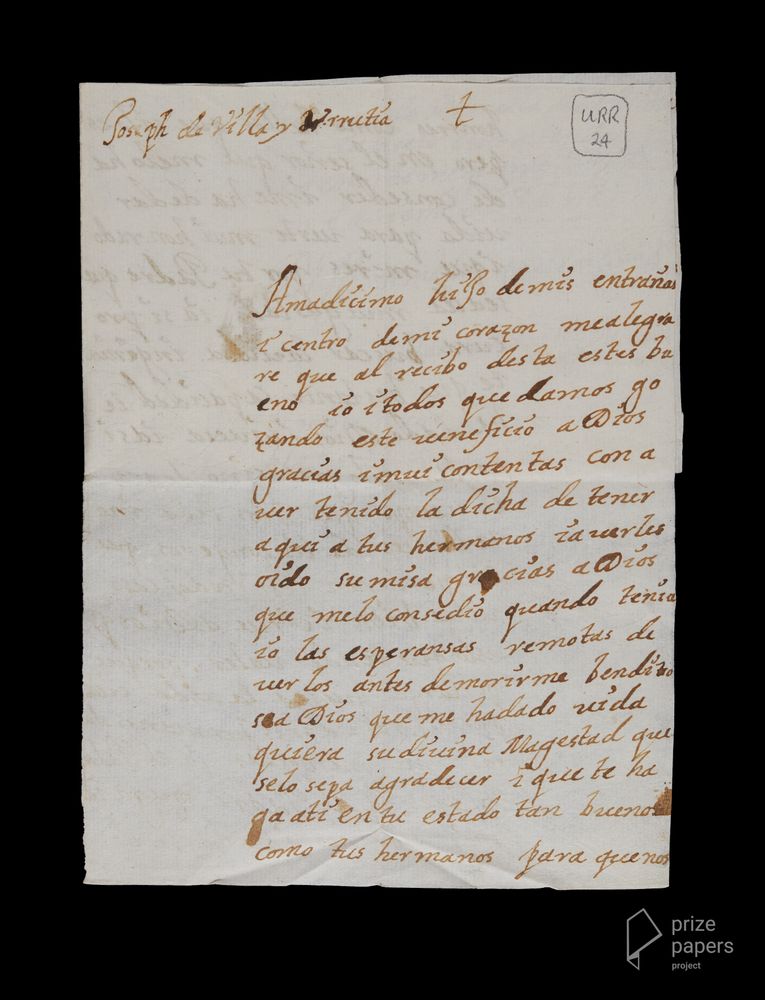 Joseph de Villa y Urrutia
URR
24
Amadicimo hiJo demis entrañas
i centro demi corazon mealegra
re que al recibo desta estes bu
eno io itodos quedamos go
zando este veneficio a Dios
gracias imui contentas con a
ver tenido la dicha de tener
aqui a tus hermanos iaverles
oido sumisa gracias aDios
que melo consedio quando tenia
io las esperansas remotas de
verlos antes demorirme bendito
sea Dios que me hadado vida
quiera sudivina Magestad que
selo sepa agradecer i que te ha
ga ati en tu estado tan bueno
como tus hermanos para quenos
prize
papers
project